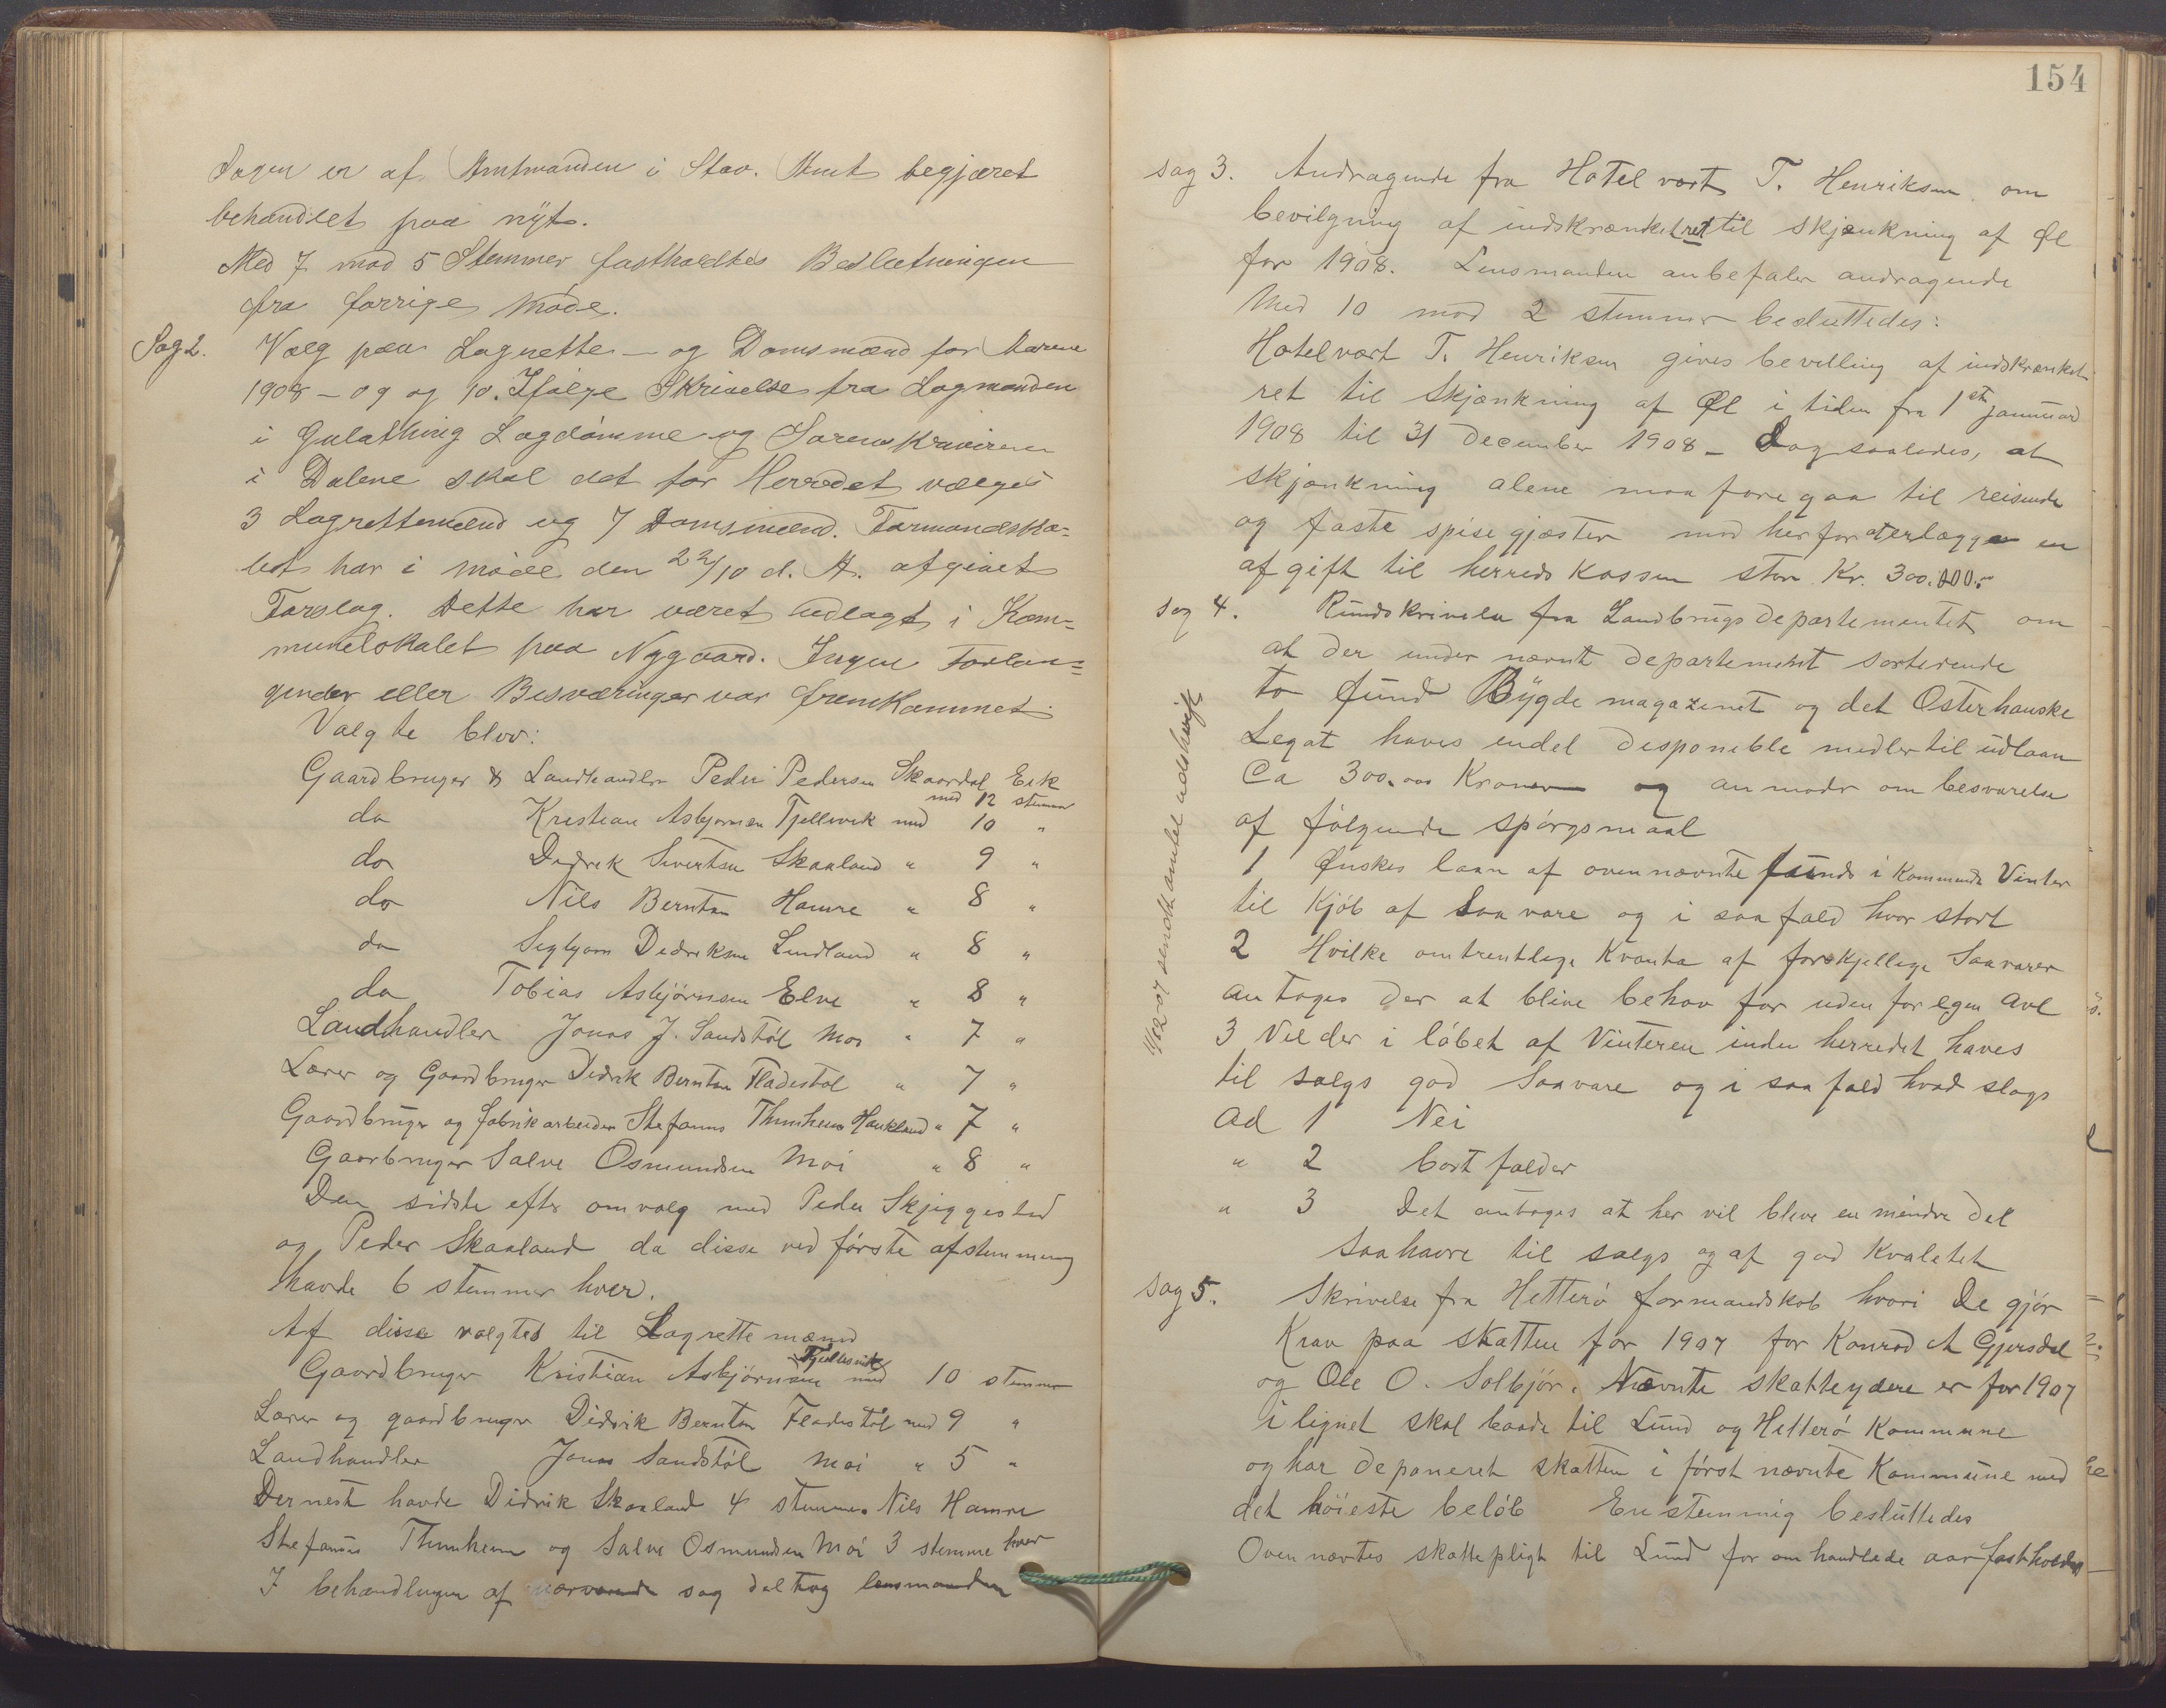 Sagen er af Amtmanden i Stav. Amt begjæret
behandlet paa nyt.
Med 7 mod 5 Stemmer fastholdtes Beslutningen
fra forrige Møde.
Sag 2. Valg paa Lagrette- og Domsmænd for Aarene
1908 - 09 og 10. Ifølge Skrivelse fra Lagmanden
i Gulathing Lagdømme og Sorenskriveren
i Dalene skal det for Herredet vælges
3 Lagrettemænd og 7 Domsmænd. Formandska=
bet har i møde den 22/10 d. A. afgivet
Forslag. Dette har været udlagt i Kom=
munelokalet paa Nygaard. Ingen Forlan=
gender eller Besværinger var fremkommet.
Valgte blev:
Gaardbruger & Landhandler Peder Pedersen Skaardal Eik
med 12 stemmer
do Kristian Asbjørnsen Fjellsvik med 10 "
do Didrik Sivertsen Skaaland " 9 "
do Nils Berntsen Hamre " 8 "
do Sigbjørn Didriksen Lindland " 8 "
do Tobias Asbjørnsen Elve " 8 "
Landhandler Jonas J. Sandstøl Moi " 7 "
Lærer og Gaardbruger Didrik Berntsen Fladestøl " 7 "
Gaardbruger og fabrikarbeider Stefanus Haukland " 7 "
Gaarbruger Salve Osmundsen Moi " 8 "
Den sidste efter omvalg med Peder Skjeggestad
og Peder Skaaland da disse ved første afstemming
havde 6 stemmer hver.
Af disse valgtes til Lagrettemænd
Gaardbruger Kristian Asbjørnsen Fjellesvik med 10 stemmer
Lærer og gaardbruger Didrik Berntsen Fladestøl med 9 "
Landhandler Jonas Sandstøl Moi " 5 "
Dernest havde Didrik Skaaland 4 stemmer. Nils Hamre
Stefanus og Salve Osmundsen Moi 3 stemme hver
I behandlingen af nærværende sag deltog lensmanden
154
sag 3. Andragende fra Hotelvært T. Henriksen om
bevilgning af indskrænket ret til skjænkning af Øl
for 1908. Lensmanden anbefaler andragende
Med 10 mod 2 stemmer besluttedes:
Hotelvært T. Henriksen gives bevilling af indskrænket
ret til skjænkning af Øl i tiden fra 1ste januuar
1908 til 31 december 1908 - dog saaledes, at
skjænkning alene maa foregaa til reisende
og faste spisegjæster mod herfor at erlægge en
afgift til herredskassen stor Kr. 300.
sag 4. Rundskrivelse fra Landbrugsdepartementet om
at der under nævnt departement sorterende
to fund Bygdemagazinet og det Osterhauske
Legat haves endel disponible midler til udlaan
Ca 300.000 Kroner og anmoder om besvarelse
af følgende spørgsmaal
1 Ønskes laan af ovennævnte funds i kommende Vinter
til Kjøb af Saavare og i saafald hvor stort
2 Hvilke omtrentlige Kvanta af forskjellige Saavarer
antages der at blive behov for udenfor egen avl
3 Vil der i løbet af Vinteren inden herredet haves
til salgs god Saavare og i saafald hvad slags
ad 1 Nei
" 2 bortfalder
" 3 Det antages at her vil blive en mindre del
saahavre til salgs og af god kvalitet
11/12 07 sendt amtet udskrift
sag 5. Skrivelse fra Hetterø formandskab hvori De gjør
Krav paa skatten for 1907 for Konrad A Gjersdal
og Ole O. Solbjør. Nævnte skatteydere er for 1907
ilignet skat baade til Lund og Hetterø Kommune
og har deponeret skatten i først nævnte Kommune med
det høieste beløb Enstemmig besluttedes
Ovennævntes skattepligt til Lund for omhandlede aar fastholdes